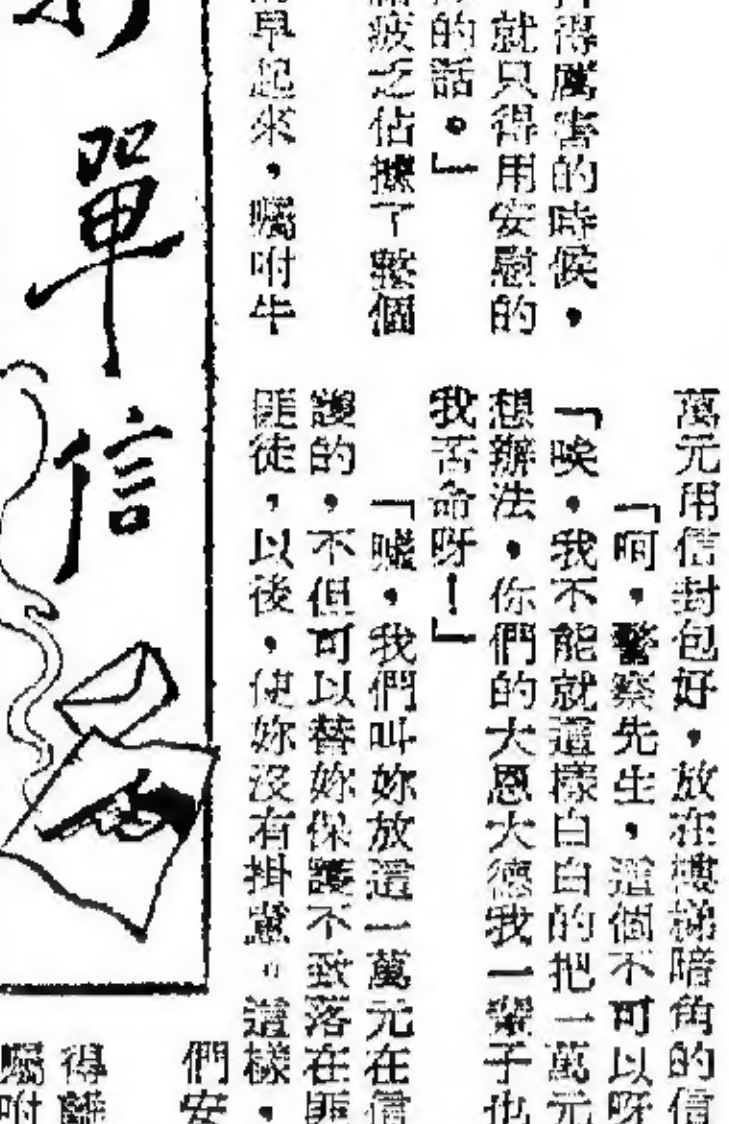 得厲害的時候，
就只得用安慰的
的話。」
疲乏佔據了整個
早起來，囑咐牛
萬元用信封包好，放在樓梯暗角的信
「呵，警察先生，這個不可以呀
「唉，我不能就這樣白白的把一萬元
想辦法，你們的大恩大德我一輩子也
我苦命呀！」
「噓，我們叫妳放這一萬元在信
護的，不但可以替妳保護不致落在匪
匪徒，以後，使妳沒有掛慮。這樣，
們安
得離
囑咐
單信